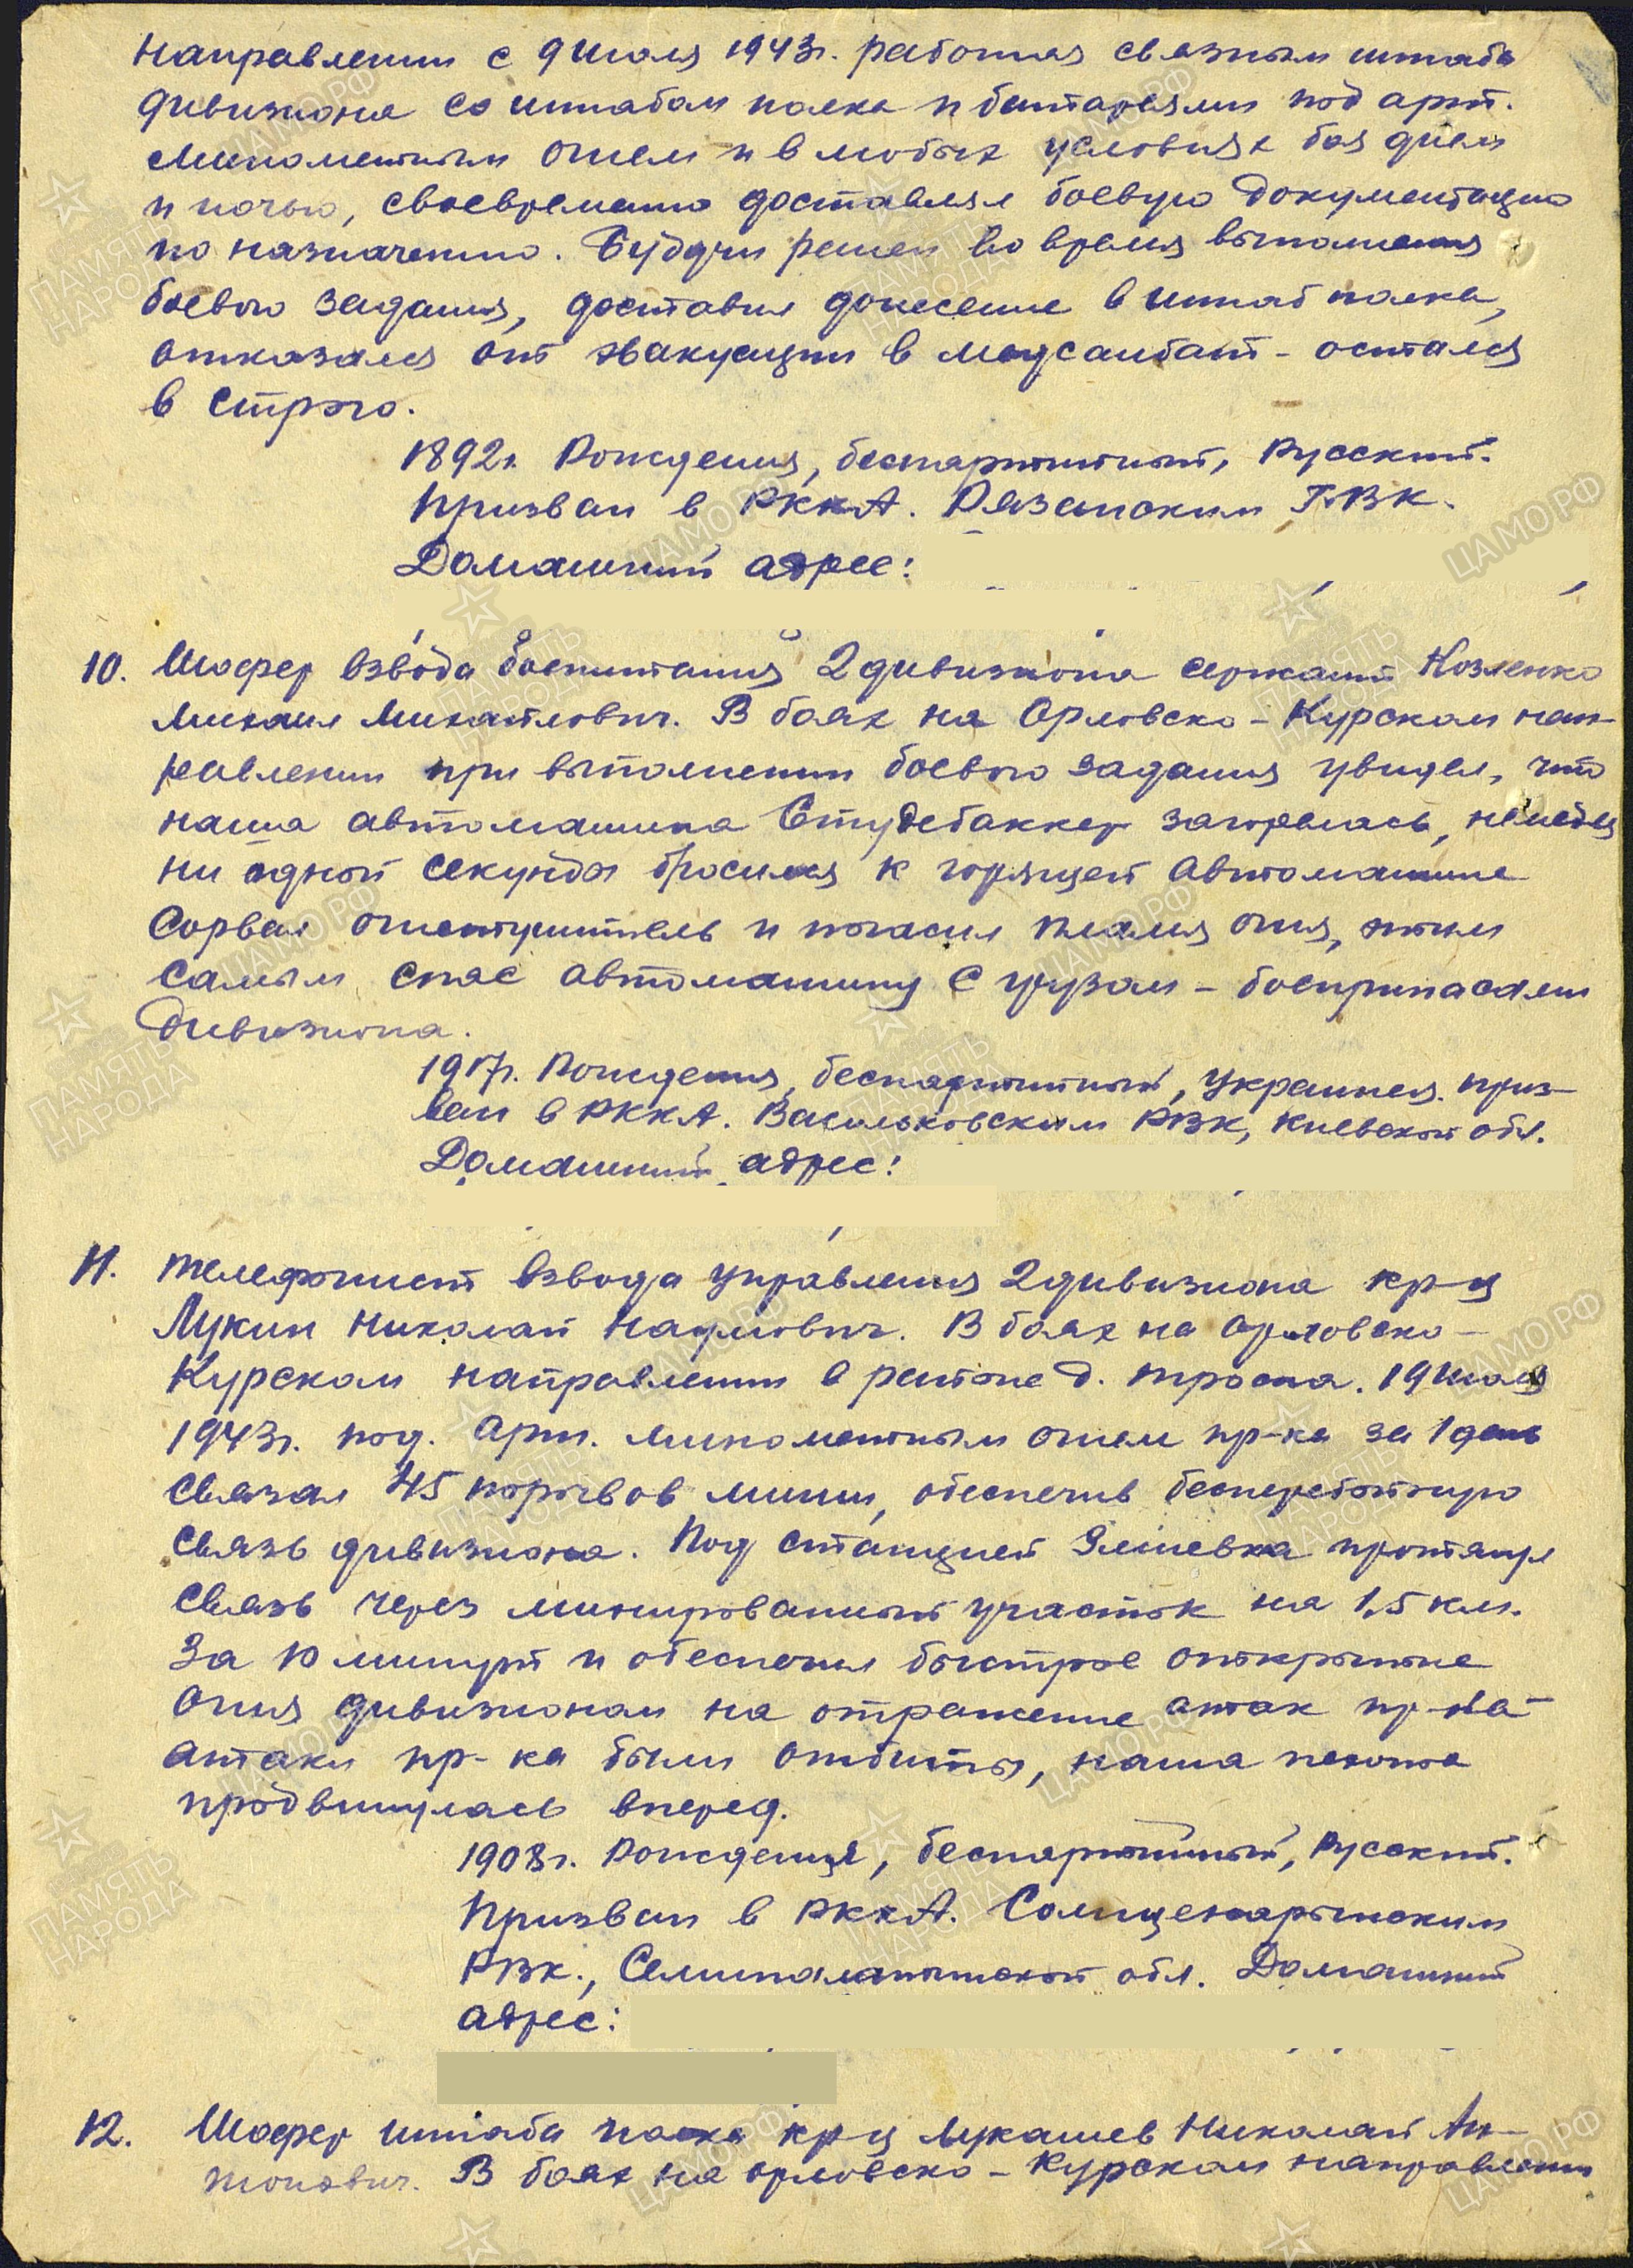 направлении с 9 июля 1943г. работая связным штаба
дивизиона со штабом полка и батареями под арт.
минометным огнем и в любых условиях боя днем
и ночью, своевременно доставлял боевую документацию
по назначению. Будучи ранен во время выполнения
боевого задания, доставил донесение в штаб полка,
отказался от эвакуации в медсанбат - остался
в строю.
1892г. рождения, беспартийный, русский.
Призван в РККА. Рязанским ГВК.
Домашний адрес:
10. Шофер взвода боепитания 2 дивизиона сержант Козленко
Михаил Михайлович. В боях на Орловско-Курском нап-
равлении при выполнении боевого задания увидел, что
наша автомашина Студебаккер загорелась, не медля
ни одной секунды бросился к горящей автомашине
сорвал огнетушитель и погасил пламя огня, этим
самым спас автомашину с грузом - боеприпасами
дивизиона.
1917г. рождения, беспартийный, украинец. приз-
ван в РККА. Васильковским РВК, Киевской обл.
Домашний адрес:
11. Телефонист взвода управления 2 дивизиона кр-ц
Лукин Николай Наумович. В боях на Орловско-
Курском направлении в районе д. Тросна. 19 июля
1943г. под. арт. минометным огнем пр-ка за 1 день
связал 45 порывов линии, обеспечив бесперебойную
связь дивизиона. Под станцией Змиевка протянул
связь через минированный участок на 1,5 км.
за 10 минут и обеспечил быстрое открытие
огня дивизионом на отражение атак пр-ка
атаки пр-ка были отбиты, наша пехота
продвинулась вперед.
1908г. рождения, беспартийный, русский.
Призван в РККА.
РВК., Семипалатинской обл. Домашний
адрес:
12. Шофер штаба полка кр-ц Лукашев Николай Ан-
тонович. В боях на Орловско-Курском направлении
ПАМЯТЬ НАРОДА
ЦАМО РФ